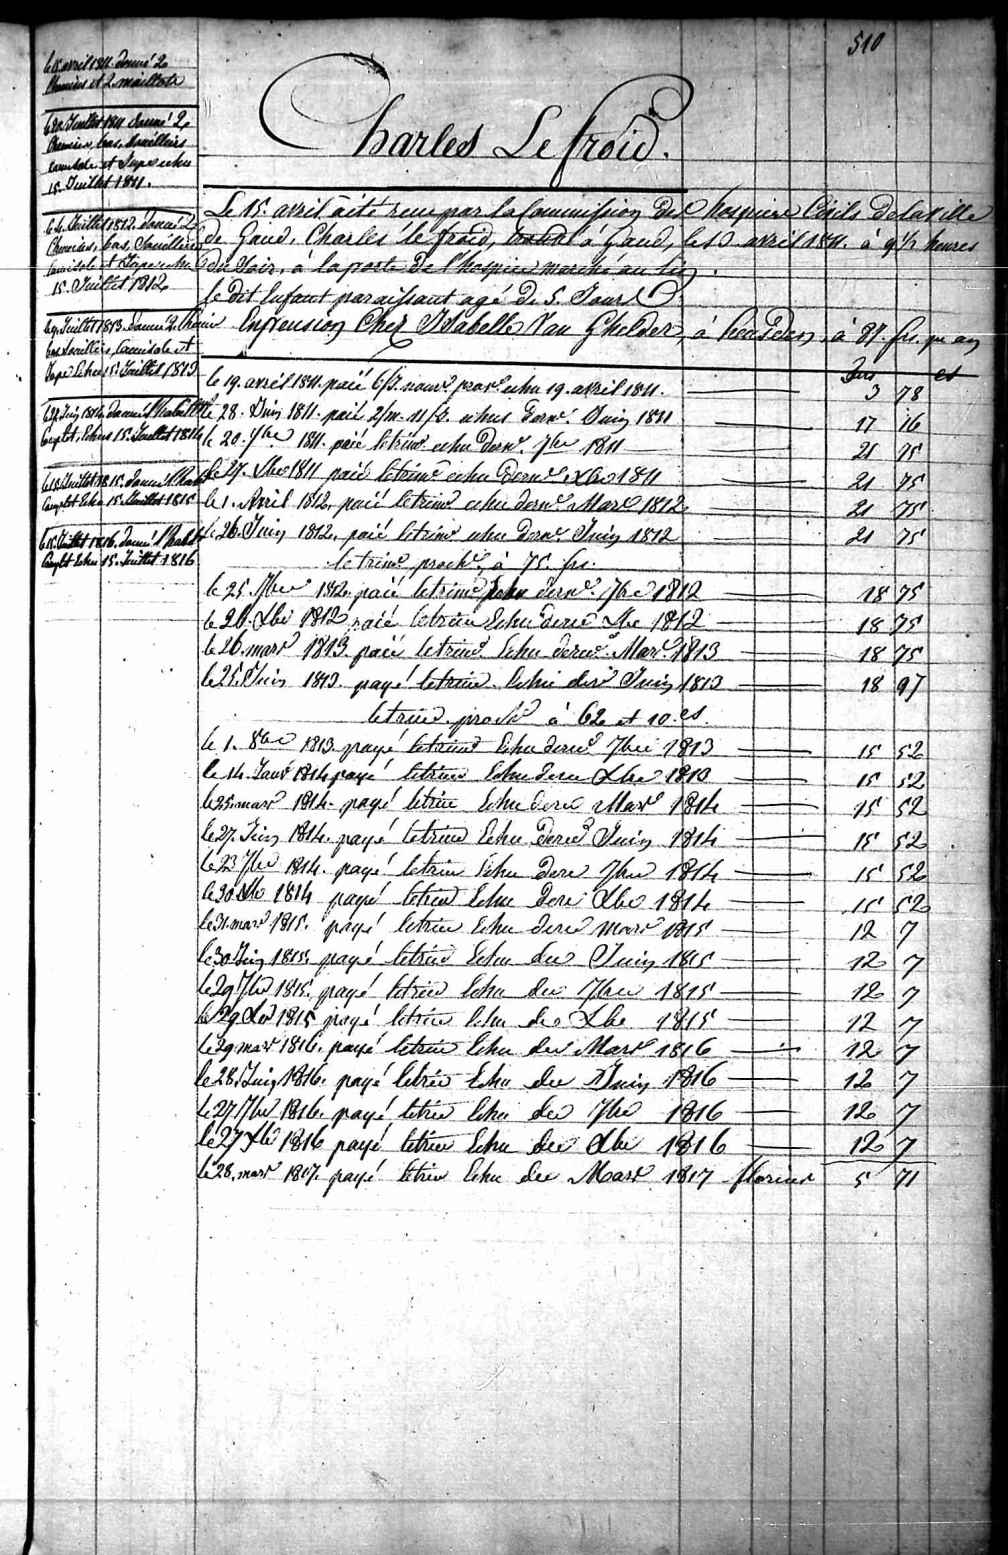 510
Charles Le froid.
le 15. avril 1811. donné 2
Chemises et 2 maillots
le 20. Juillet 1811 donné 2
Chemises, bas, Souilliers
camisole et Jupe echu
15. Juillet 1811.
le 4. Juillet 1812. donné 2
Chemises, bas, Souilliers
Camisole et Jupe echu
15. Juillet 1812
le 9. Juillet 1813. donné 2. Chemise
bas Souilliers, Camisole et
Jupe Echus 15. Juillet 1813
le 27. Juin 1814. donné l'habillt
Complet, Echus 15. Juillet 1814
le 15. Juillet 1815. donné l'habt
Complet Echu 15. Juillet 1815
le 15. Juillet 1816. donné l'habt
Complet Echu 15. Juillet 1816
Le 15. avril a été reçu par la Commission des hospices Civils de la Ville
de Gand, Charles le froid, trouvé à Gand, le 10 avril 1811. à 9 1/2 heures
du Soir, à la porte de l'hospice marché au lin.
le dit Enfant paraissant agé de 5. Jours
En pension Chez Isabelle Van Ghelder, à heusden, à 87. frs. par an
frs cs
le 19. avril 1811. paié echu 19. avril 1811. 3 78
le 28. Juin 1811. paié echus dernr. Juin 1811 17 16
le 20. 7bre 1811. paié le trimr. echu dernr. 7bre 1811 21 75
le 27. Xbre 1811 paié le trimr echu dernr. Xbre 1811 21 75
le 1. Avril 1812, paié le trimr echu dernr Mars 1812 21 75
le 26. Juin 1812, paié le trimr echu dernr Juin 1812 21 75
le trimr prochr, à 75. frs.
le 25. 7bre 1812. paié le trimr Echu dernr. 7bre 1812 18 75
le 26. Xbre 1812 paié le trimr Echu dernr Xbre 1812 18 75
le 26. mars 1813. paié le trimr Echu dernr. Mars 1813 18 75
le 25. Juin 1813. payé le trimr Echu derr Juin 1813 18 97
le trimr prochr à 62 et 10 cs.
le 1. 8bre 1813. payé le trimr Echu dernr 7bre 1813 15 52
le 14. Janvr 1814 payé le trimr Echu dernr Xbre 1813 15 52
le 25. mars 1814. payé le trimr Echu dernr Mars 1814 15 52
le 27. Juin 1814. payé le trimr Echu dernr Juin 1814 15 52
le 23 7bre 1814. payé le trimr Echu derr 7bre 1814 15 52
le 30 Xbre 1814 payé le trimr Echu derr Xbre 1814 15 52
le 31. mars 1815. payé le trimr Echu derr mars 1815 12 7
le 30 Juin 1815. payé le trimr Echu der Juin 1815 12 7
le 29 7bre 1815. payé le trimr Echu der 7bre 1815 12 7
le 29 Xbre 1815 payé le trimr Echu der Xbre 1815 12 7
le 29 mars 1816. payé le trimr Echu der Mars 1816 12 7
le 28. Juin 1816. payé le trimr Echu der Juin 1816 12 7
le 27 7bre 1816. payé le trimr Echu der 7bre 1816 12 7
le 27 Xbre 1816 payé le trimr Echu der Xbre 1816 12 7
le 28. mars 1817. payé le trimr Echu der Mars 1817 florins 5 71